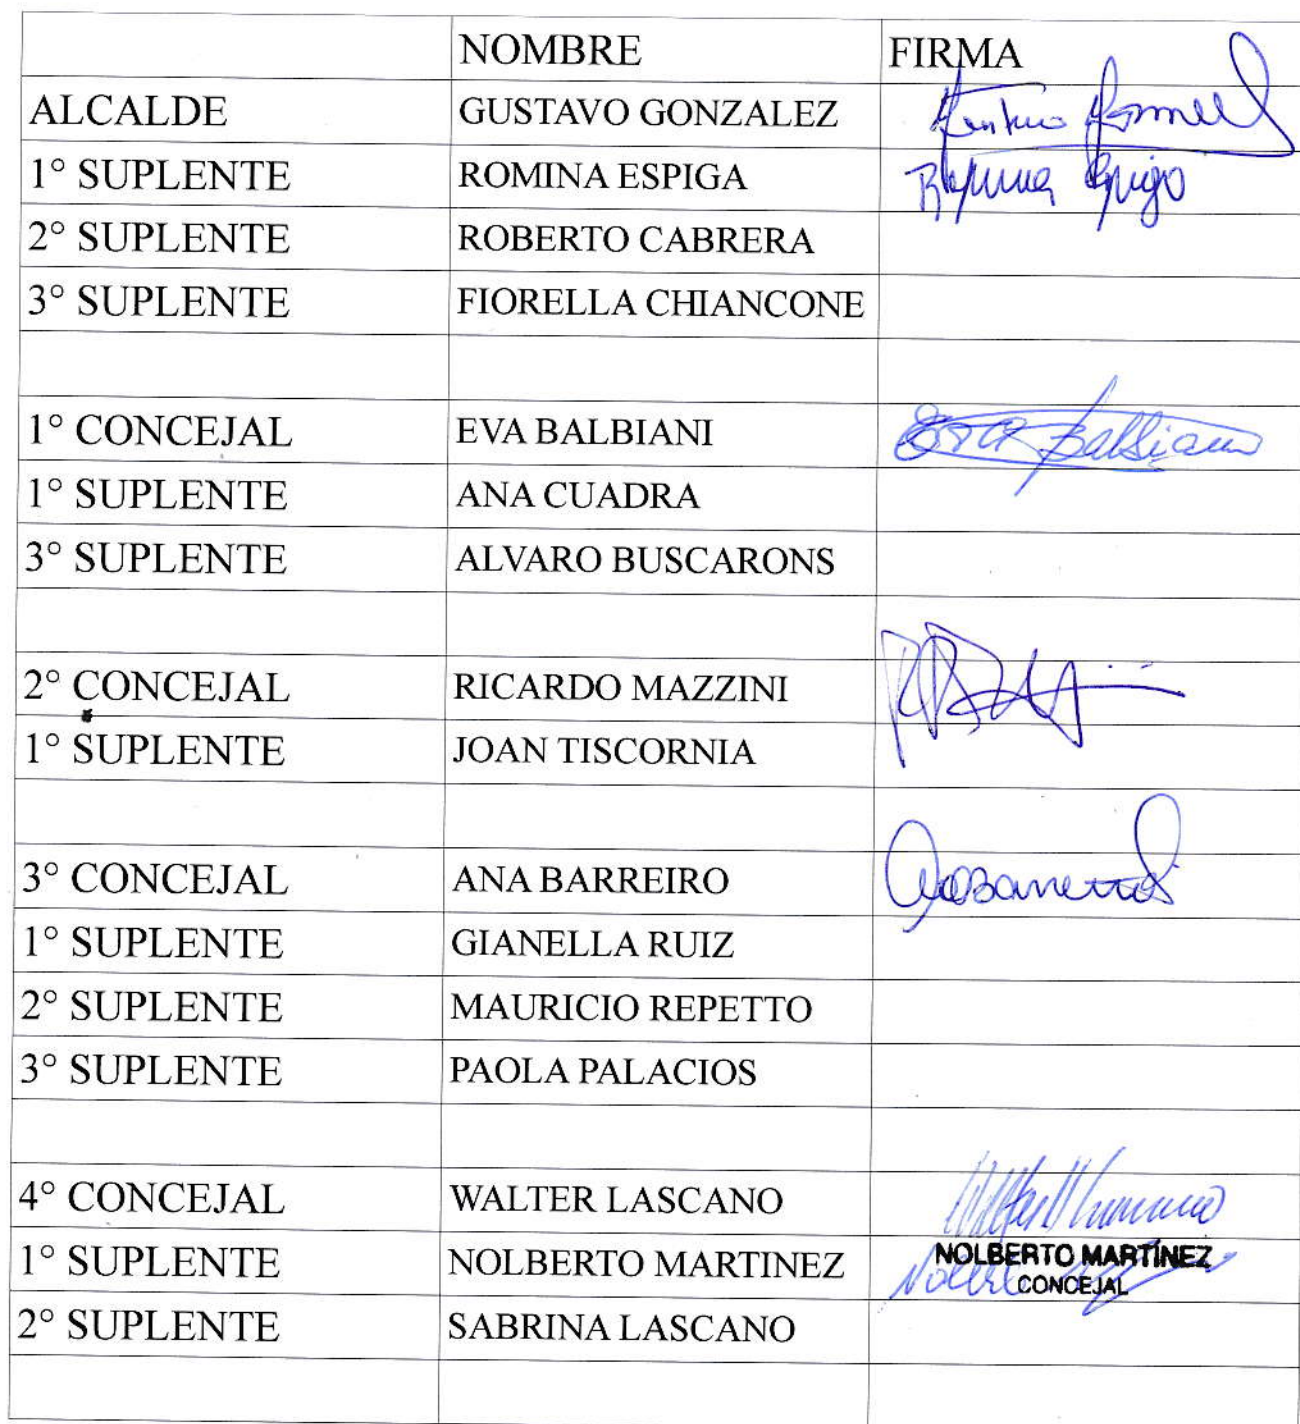 NOMBRE FIRMA
ALCALDE GUSTAVO GONZALEZ
1° SUPLENTE ROMINA ESPIGA Romina Espiga
2° SUPLENTE ROBERTO CABRERA
3° SUPLENTE FIORELLA CHIANCONE
1° CONCEJAL EVA BALBIANI Eva Balbiani
1° SUPLENTE ANA CUADRA
3° SUPLENTE ALVARO BUSCARONS
2° CONCEJAL RICARDO MAZZINI
1° SUPLENTE JOAN TISCORNIA
3° CONCEJAL ANA BARREIRO
1° SUPLENTE GIANELLA RUIZ
2° SUPLENTE MAURICIO REPETTO
3° SUPLENTE PAOLA PALACIOS
4° CONCEJAL WALTER LASCANO
1° SUPLENTE NOLBERTO MARTINEZ NOLBERTO MARTÍNEZ
CONCEJAL
2° SUPLENTE SABRINA LASCANO